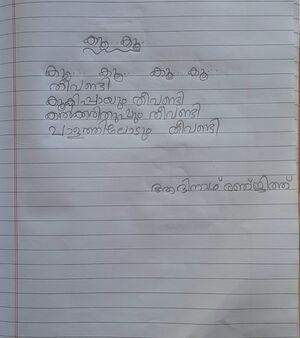 കൂ.. കൂ..
കൂ... കൂ... കൂ... കൂ...
തീവണ്ടി
കൂകിപ്പായും തീവണ്ടി
കൽക്കരിതുപ്പും തീവണ്ടി
പാളത്തിലോടും തീവണ്ടി
ആദിനാഥ് രഞ്ജിത്ത്